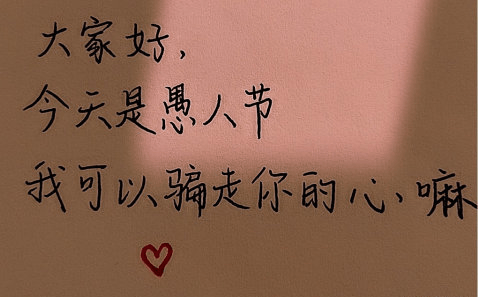 大家好,
今天是愚人节
我可以骗走你的心、嘛